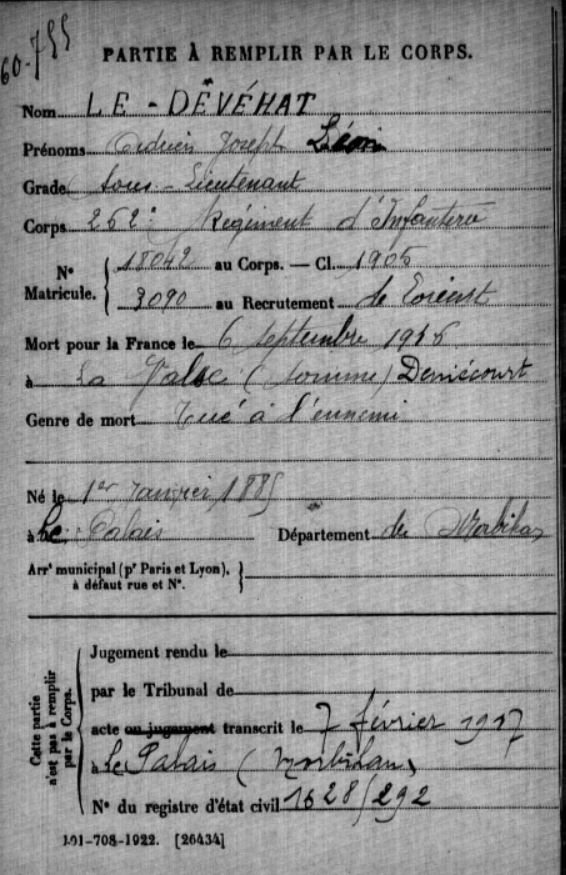 60-755
PARTIE À REMPLIR PAR LE CORPS.
Nom LE-DÉVÉHAT
Prénoms Adrien Joseph Léon
Grade Sous-Lieutenant
Corps 262e Régiment d'Infanterie
N° Matricule. { 18042 au Corps. — Cl. 1905
3090 au Recrutement de Lorient
Mort pour la France le 6 septembre 1916
à La (Somme) Deniécourt
Genre de mort Tué à l'ennemi
Né le 1er Janvier 1885
à Le Palais Département du Morbihan
Arrt municipal (pr Paris et Lyon), }
à défaut rue et N°.
Cette partie n'est pas à remplir par le Corps.
Jugement rendu le
par le Tribunal de
acte ou jugement transcrit le 7 février 1917
à Le Palais (Morbihan)
N° du registre d'état civil 1628/292
101-708-1922. [26434]